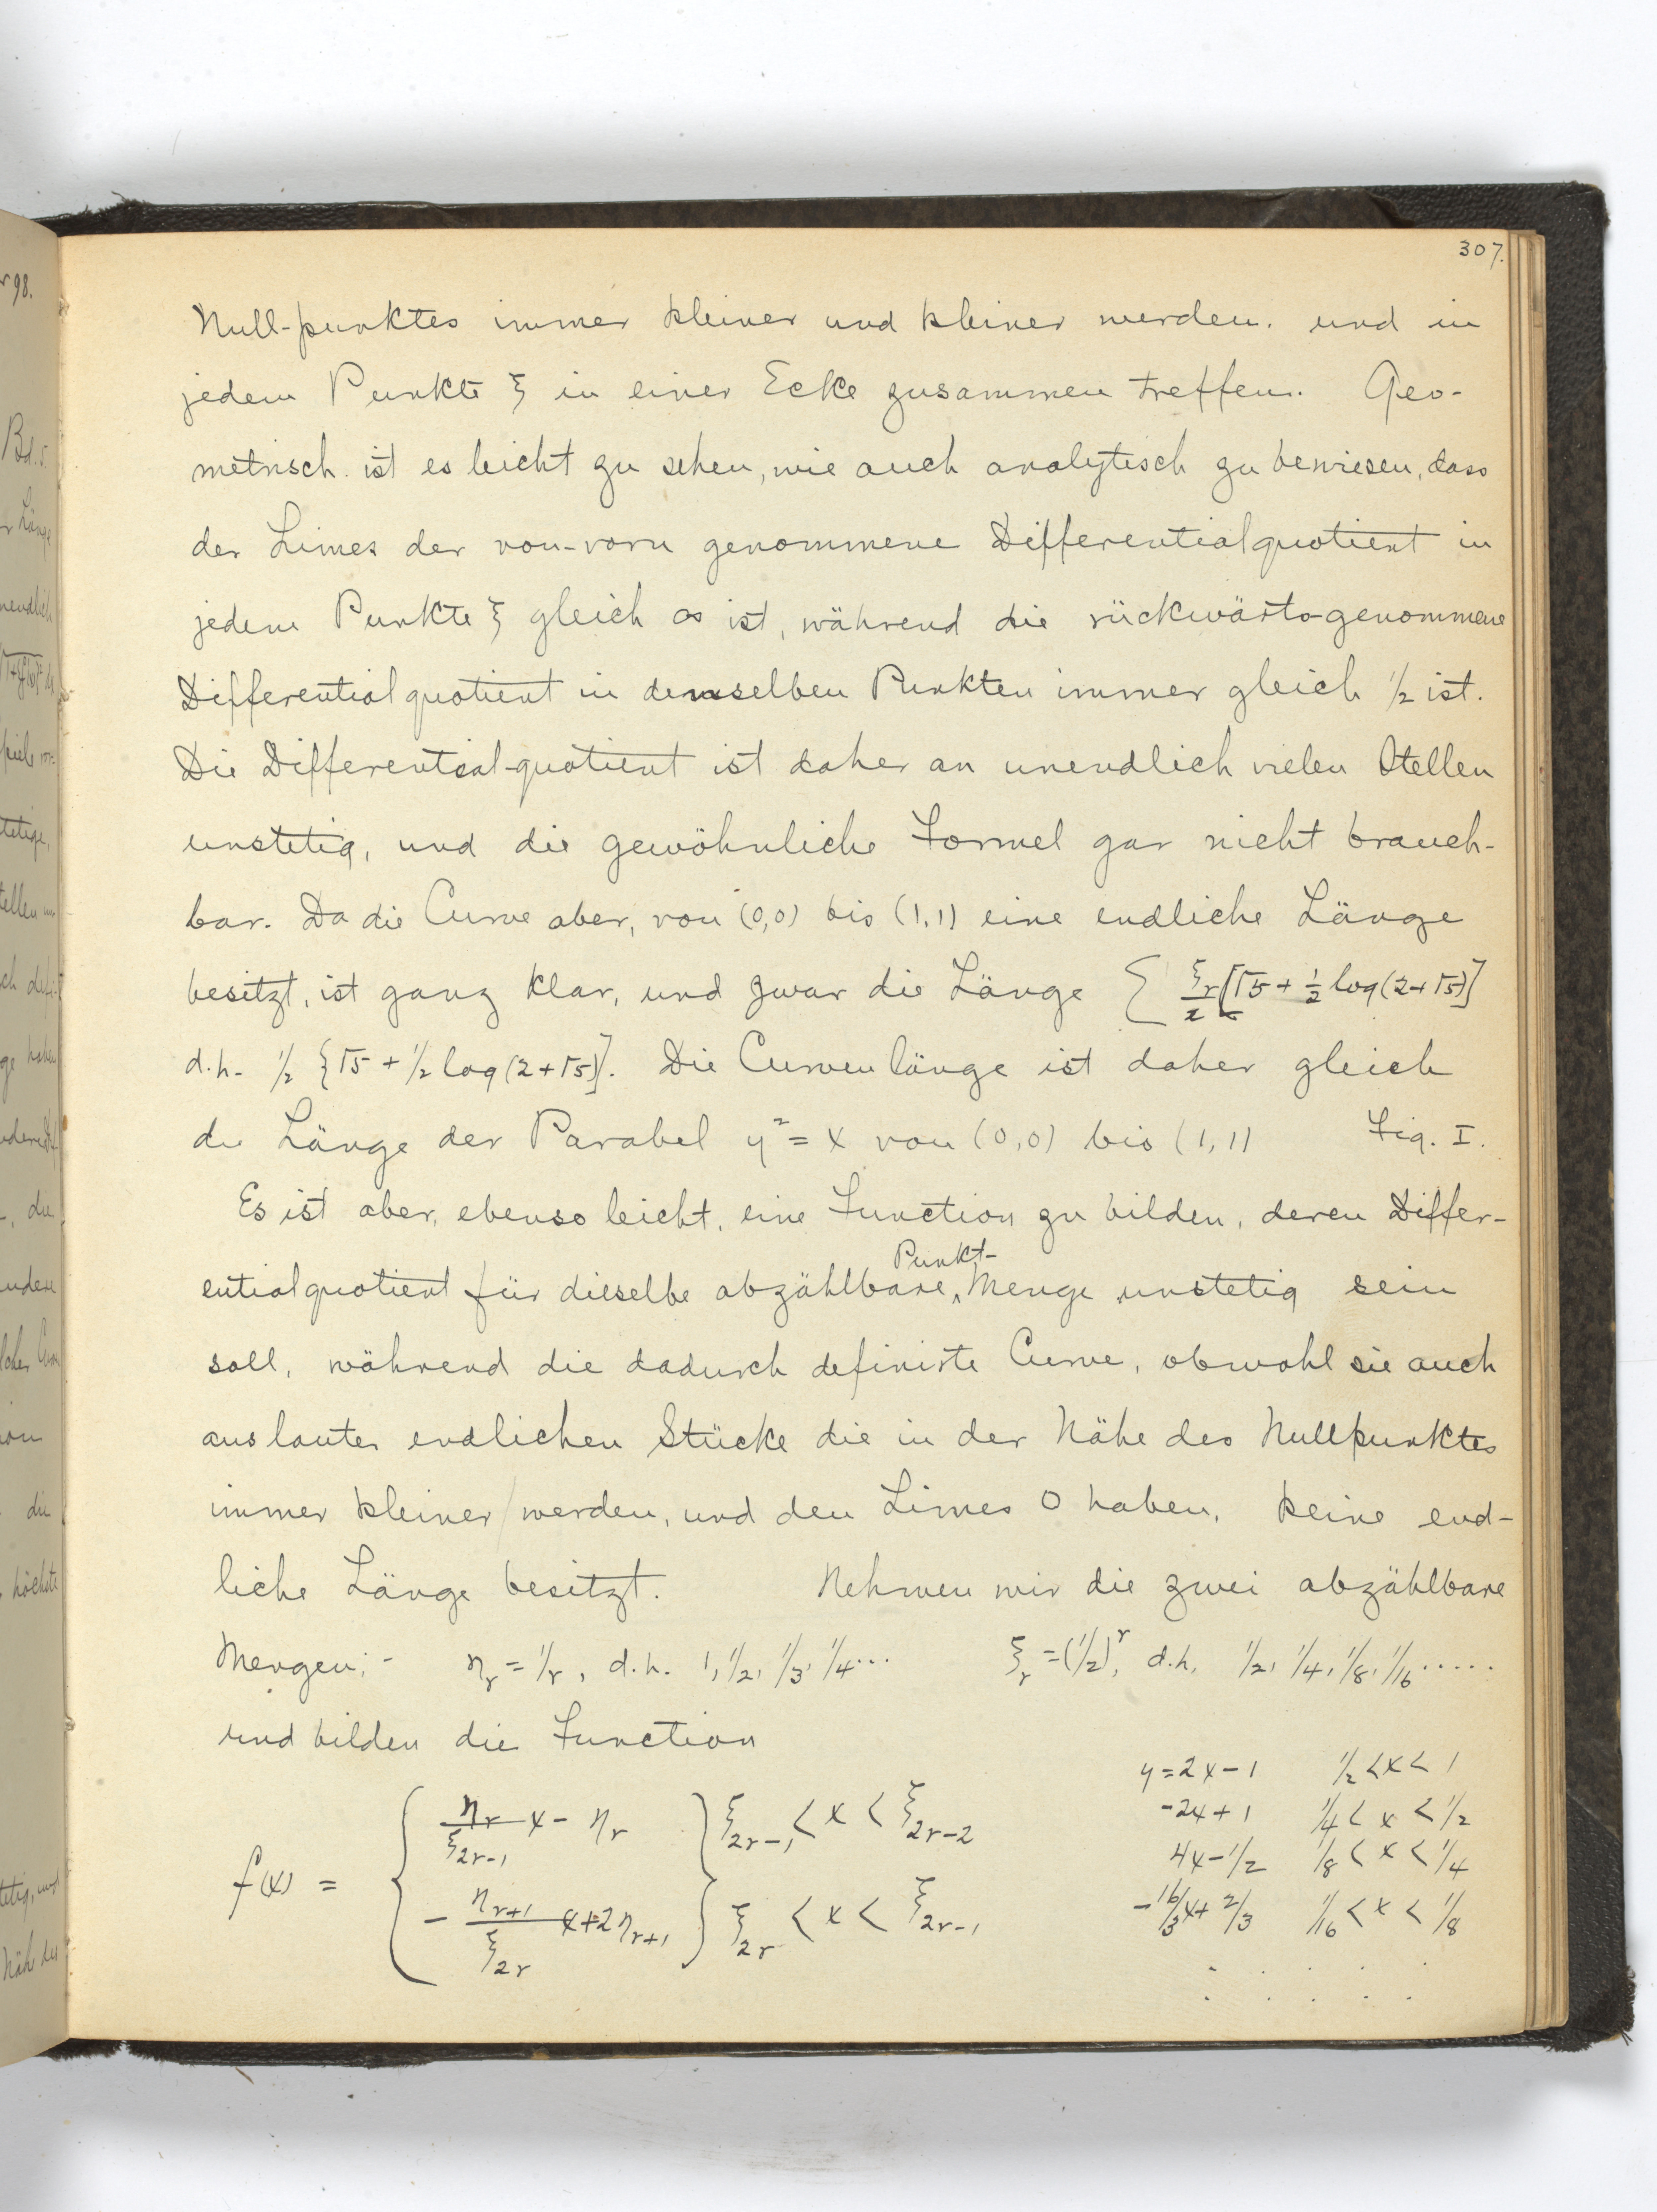 307.
Null-punktes immer kleiner und kleiner werden. und in
jedem Punkte ξ in einer Ecke zusammen treffen. Geo-
metrisch ist es leicht zu sehen, wie auch analytisch zu bewiesen, dass
der Limes der von-vorn genommene Differentialquotient in
jedem Punkte ξ gleich ∞ ist, während die rückwärts-genommene
Differentialquotient in denselben Punkten immer gleich 1/2 ist.
Die Differential-quotient ist daher an unendlich vielen Stellen
unstetig, und die gewöhnliche Formel gar nicht brauch-
bar. Da die Curve aber, von (0,0) bis (1,1) eine endliche Länge
besitzt, ist ganz klar, und zwar die Länge Σ ξr/2 [√5 + 1/2 log(2+√5)]
d.h. 1/2 {√5 + 1/2 log(2+√5)]. Die Curvenlänge ist daher gleich
die Länge der Parabel y² = x von (0,0) bis (1,1) Fig. I.
Es ist aber, ebenso leicht, eine Function zu bilden, deren Differ-
Punkt-
entialquotient für dieselbe abzählbare, ‸ Menge unstetig sein
soll, während die dadurch definirte Curve, obwohl sie auch
aus lauter endlichen Stücke die in der Nähe des Nullpunktes
immer kleiner werden, und den Limes 0 haben, keine end-
liche Länge besitzt. Nehmen wir die zwei abzählbare
Mengen:- ηr = 1/r, d.h. 1, 1/2, 1/3, 1/4... ξr = (1/2)^r, d.h. 1/2, 1/4, 1/8, 1/16.....
und bilden die Function
y = 2x - 1 1/2 < x < 1
-2x + 1 1/4 < x < 1/2
4x - 1/2 1/8 < x < 1/4
-16/3 x + 2/3 1/16 < x < 1/8
f(x) = { ηr/ξ2r-1 x - ηr } ξ2r-1 < x < ξ2r-2
- ηr+1/ξ2r x + 2ηr+1 } ξ2r < x < ξ2r-1